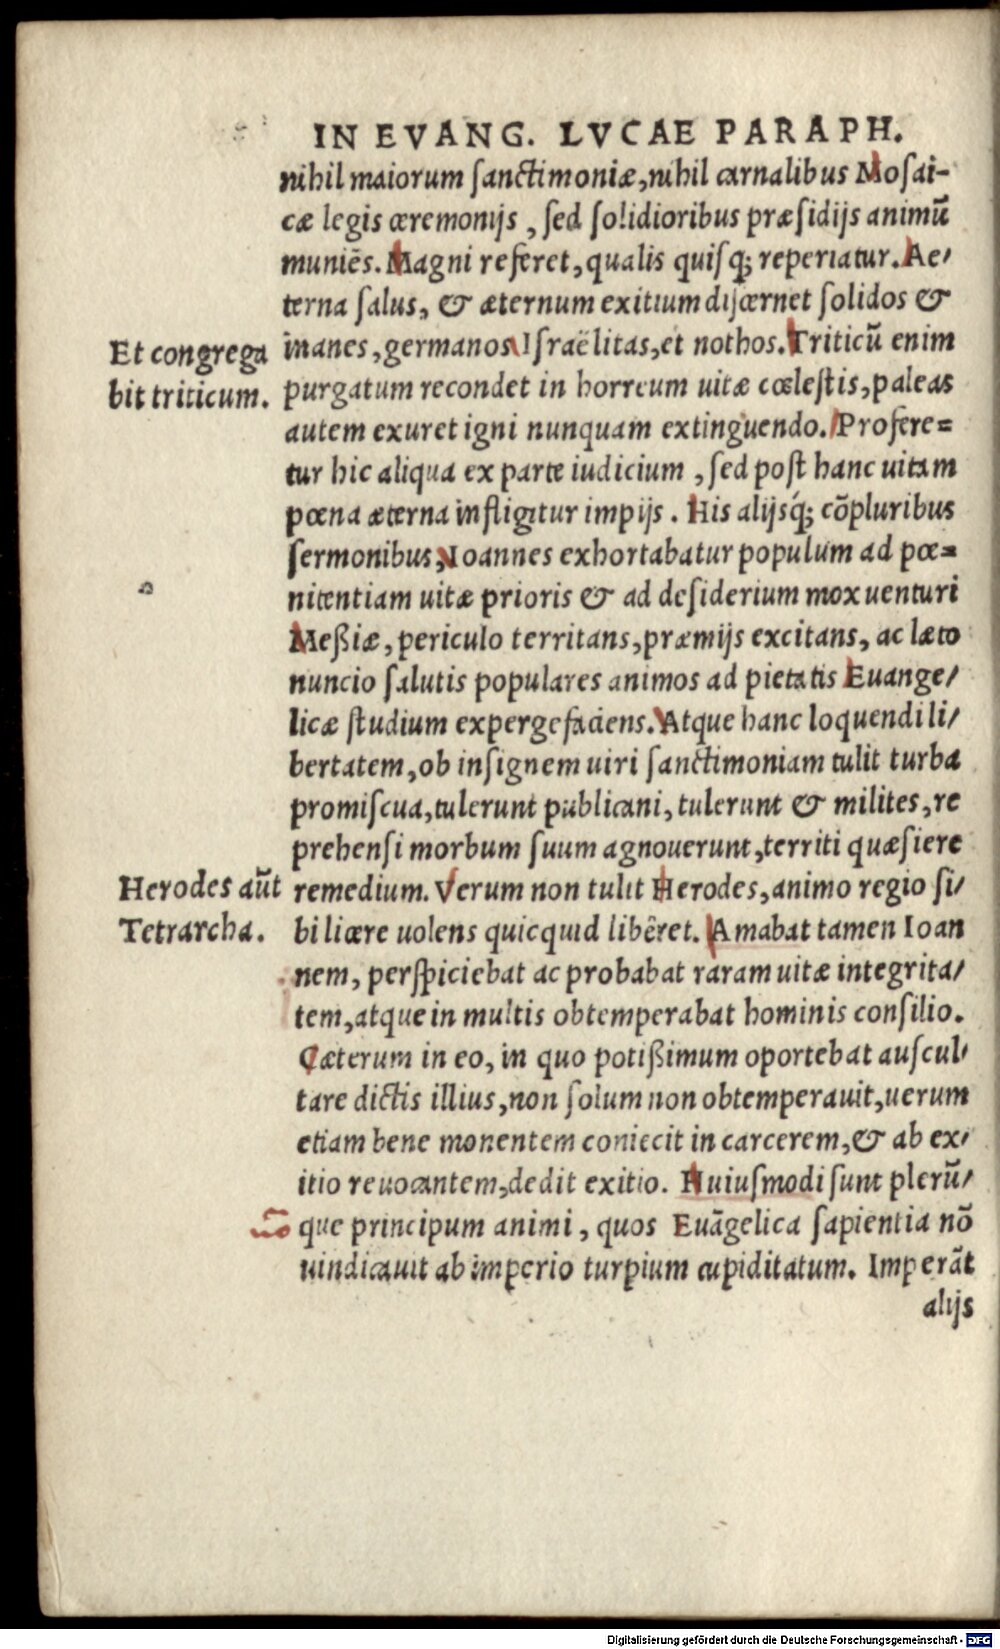 IN EVANG. LVCAE PARAPH.
nihil maiorum sanctimoniæ, nihil carnalibus Mosai-
cæ legis ceremonijs, sed solidioribus præsidijs animū
muniēs. Magni referet, qualis quisq; reperiatur. Ae/
terna salus, & æternum exitium discernet solidos &
Et congrega
bit triticum.
inanes, germanos Israëlitas, et nothos. Triticū enim
purgatum recondet in horreum uitæ cœlestis, paleas
autem exuret igni nunquam extinguendo. Profere=
tur hic aliqua ex parte iudicium, sed post hanc uitam
pœna æterna infligitur impijs. His alijsq́; cōpluribus
sermonibus, Ioannes exhortabatur populum ad pœ=
nitentiam uitæ prioris & ad desiderium mox uenturi
Meßiæ, periculo territans, præmijs excitans, ac læto
nuncio salutis populares animos ad pietatis Euange/
licæ studium expergefaciens. Atque hanc loquendi li/
bertatem, ob insignem uiri sanctimoniam tulit turba
promiscua, tulerunt publicani, tulerunt & milites, re
prehensi morbum suum agnouerunt, territi quæsiere
Herodes aūt
Tetrarcha.
remedium. Verum non tulit Herodes, animo regio si/
bi licere uolens quicquid libêret. Amabat tamen Ioan
nem, perspiciebat ac probabat raram uitæ integrita/
tem, atque in multis obtemperabat hominis consilio.
Cæterum in eo, in quo potißimum oportebat auscul/
tare dictis illius, non solum non obtemperauit, uerum
etiam bene monentem coniecit in carcerem, & ab ex/
itio reuocantem, dedit exitio. Huiusmodi sunt plerū/
que principum animi, quos Euāgelica sapientia nō
uindicauit ab imperio turpium cupiditatum. Imperāt
alijs
Digitalisierung gefördert durch die Deutsche Forschungsgemeinschaft - DFG